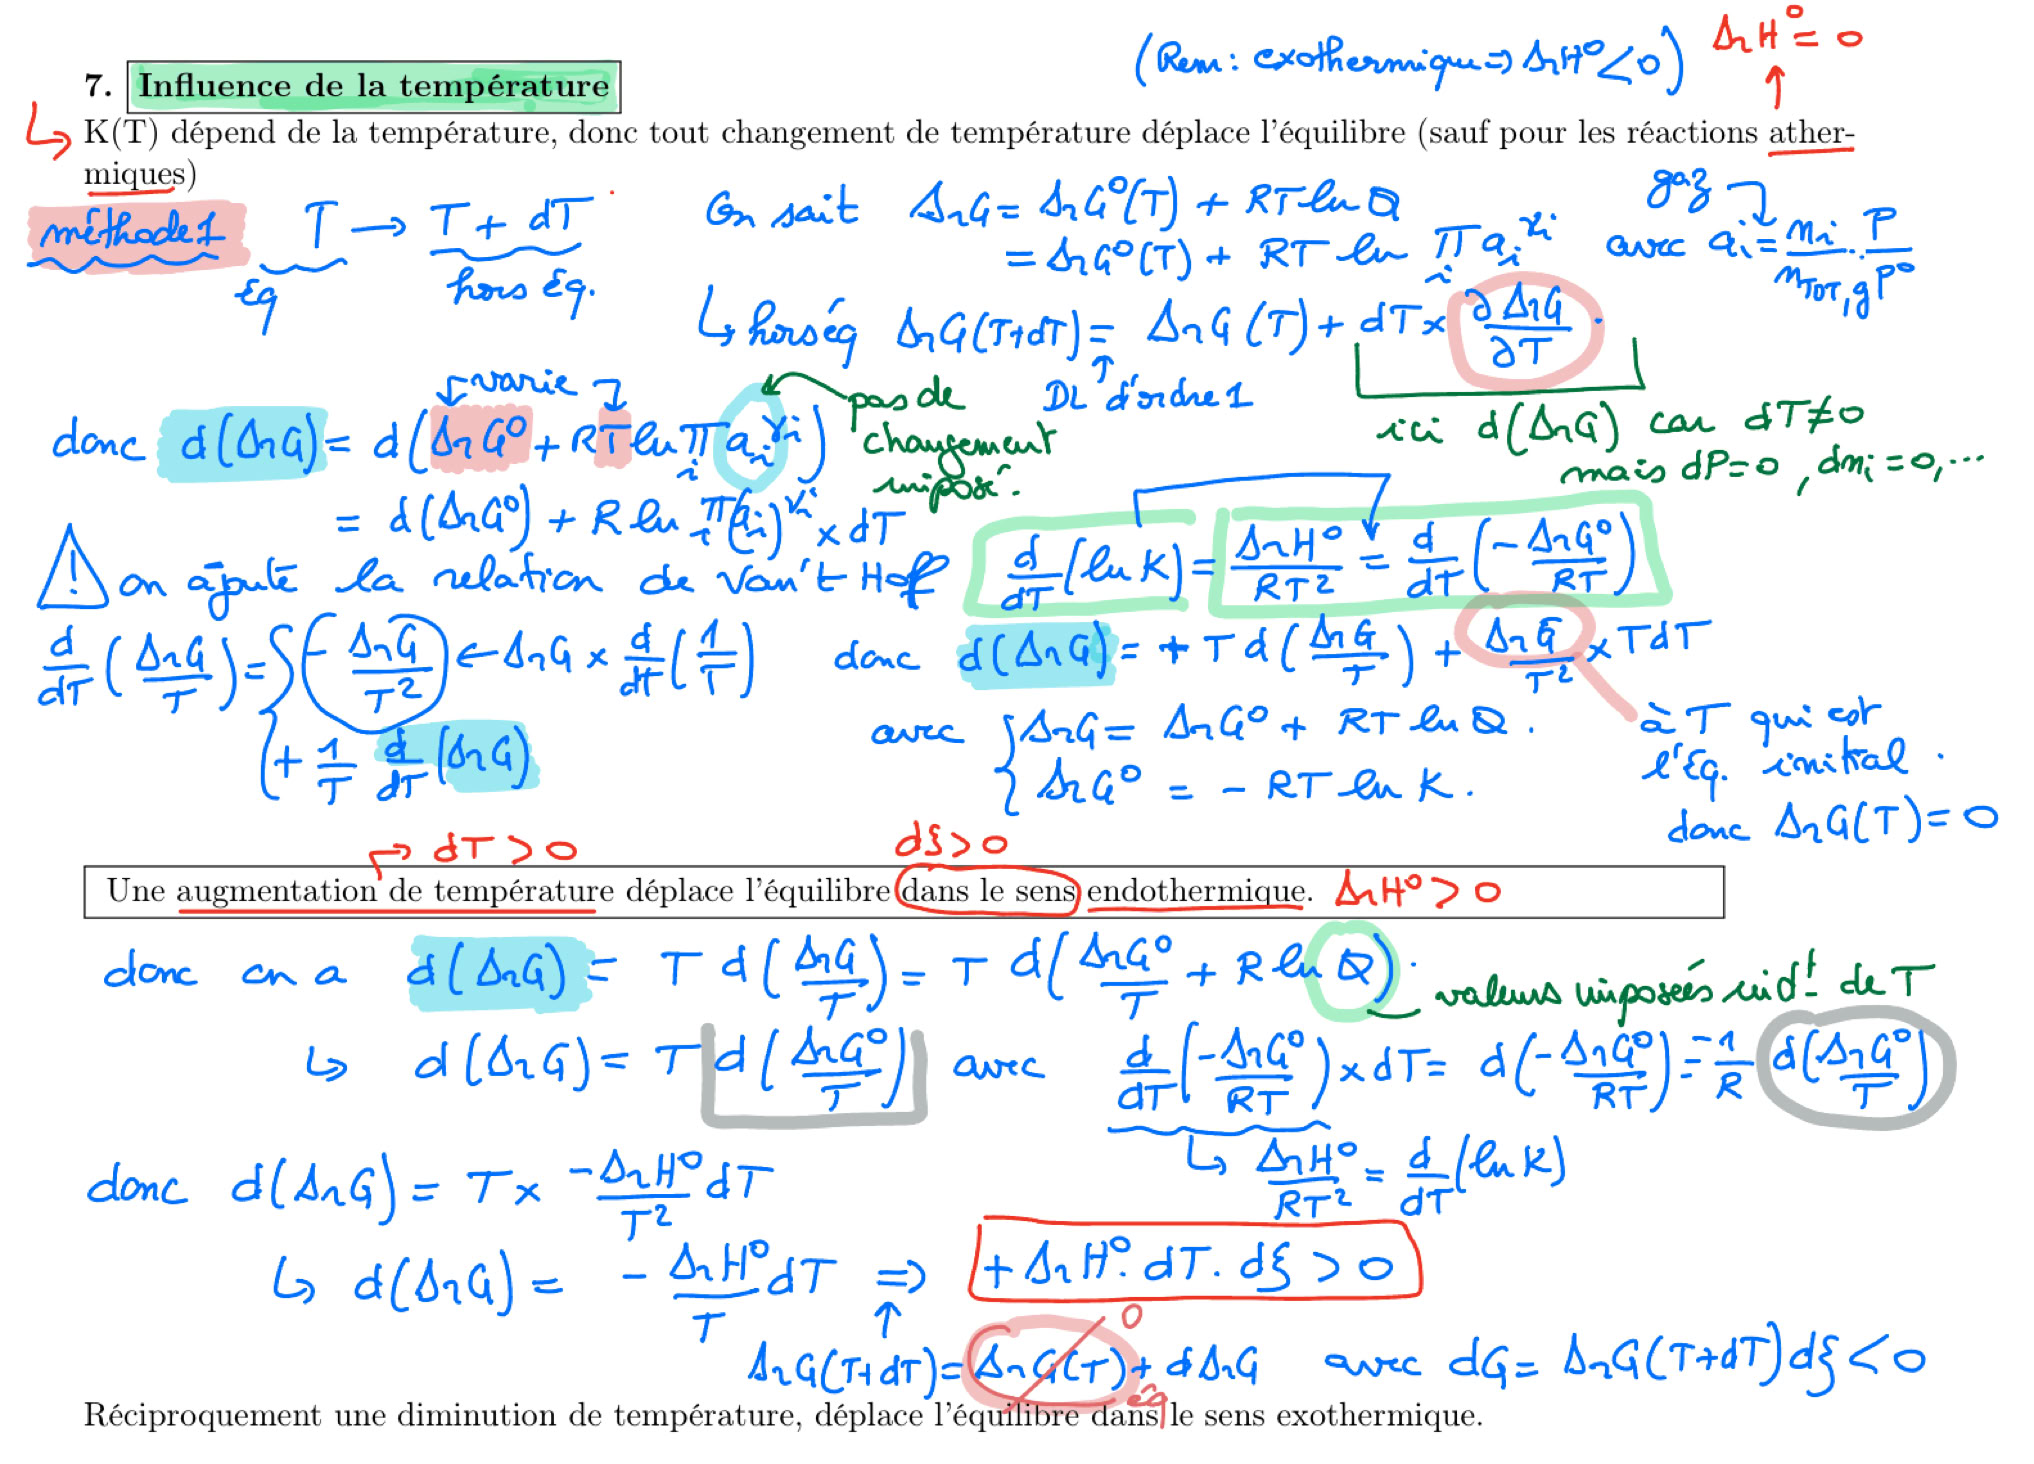 (Rem : exothermique => ΔrH° < 0) ΔrH° = 0
7. Influence de la température
K(T) dépend de la température, donc tout changement de température déplace l'équilibre (sauf pour les réactions ather-
miques)
méthode 1 T → T + dT
Éq hors éq.
On sait ΔrG = ΔrG°(T) + RT ln Q
= ΔrG°(T) + RT ln Π_i a_i^νi avec a_i = n_i/n_TOT,g . P/P°
gaz
↳ hors éq ΔrG(T+dT) = ΔrG(T) + dT × ∂ΔrG/∂T .
DL d'ordre 1
ici d(ΔrG) car dT≠0
mais dP=0, dn_i=0,...
varie
donc d(ΔrG) = d(ΔrG° + RT ln Π_i a_i^νi)
pas de
changement
imposé.
= d(ΔrG°) + R ln Π_i (a_i)^νi × dT
! on ajoute la relation de Van't Hoff d/dT (ln K) = ΔrH°/RT² = d/dT (-ΔrG°/RT)
d/dT (ΔrG/T) = { (- ΔrG/T²) ← ΔrG × d/dT (1/T)
+ 1/T d/dT (ΔrG)
donc d(ΔrG) = + T d(ΔrG/T) + ΔrG/T² × T dT
avec { ΔrG = ΔrG° + RT ln Q .
ΔrG° = - RT ln K .
à T qui est
l'Éq. initial .
donc ΔrG(T) = 0
dT > 0 dξ > 0
Une augmentation de température déplace l'équilibre dans le sens endothermique. ΔrH° > 0
donc on a d(ΔrG) = T d(ΔrG/T) = T d(ΔrG°/T + R ln Q) .
valeurs imposées indt de T
↳ d(ΔrG) = T d(ΔrG°/T) avec d/dT (-ΔrG°/RT) × dT = d(-ΔrG°/RT) = -1/R d(ΔrG°/T)
↳ ΔrH°/RT² = d/dT (ln K)
donc d(ΔrG) = T × -ΔrH°/T² dT
↳ d(ΔrG) = - ΔrH°/T dT => + ΔrH° . dT . dξ > 0
ΔrG(T+dT) = ΔrG(T) + dΔrG avec dG = ΔrG(T+dT) dξ < 0
0
éq
Réciproquement une diminution de température, déplace l'équilibre dans le sens exothermique.